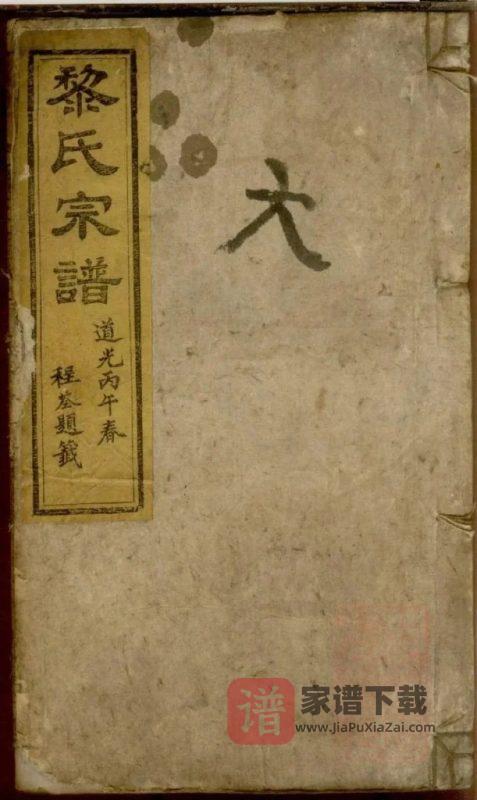 黎氏宗譜
道光丙午春
程荃題籤
大
谱
家谱下载
www.JiaPuXiaZai.com